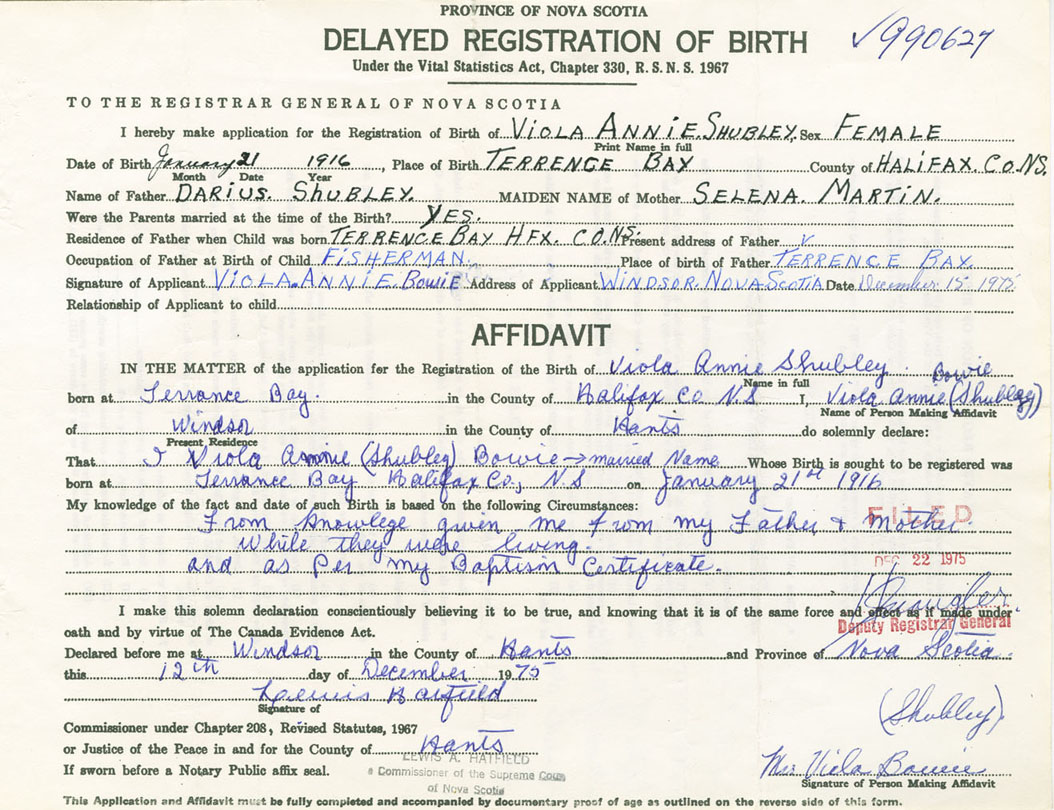 PROVINCE OF NOVA SCOTIA
DELAYED REGISTRATION OF BIRTH
√990627
Under the Vital Statistics Act, Chapter 330, R. S. N. S. 1967
TO THE REGISTRAR GENERAL OF NOVA SCOTIA
I hereby make application for the Registration of Birth of VIOLA ANNIE SHUBLEY. Sex FEMALE
Print Name in full
Date of Birth January 21 1916, Place of Birth TERRENCE BAY County of HALIFAX. CO. NS.
Month Date Year
Name of Father DARIUS. SHUBLEY. MAIDEN NAME of Mother SELENA. MARTIN.
Were the Parents married at the time of the Birth? YES.
Residence of Father when Child was born TERRENCE BAY HFX. CO. NS. Present address of Father √
Occupation of Father at Birth of Child FISHERMAN. Place of birth of Father TERRENCE BAY
Signature of Applicant VIOLA. ANNIE. BOWIE Address of Applicant WINDSOR. NOVA SCOTIA Date December 15 1975
Relationship of Applicant to child
AFFIDAVIT
IN THE MATTER of the application for the Registration of the Birth of Viola Annie Shubley. Bowie
Name in full
born at Terrance Bay. in the County of Halifax Co N.S I, Viola Annie (Shubley)
Name of Person Making Affidavit
of Windsor in the County of Hants do solemnly declare:
Present Residence
That I Viola Annie (Shubley) Bowie → married Name Whose Birth is sought to be registered was
born at Terrance Bay Halifax Co., N.S on January 21st 1916
My knowledge of the fact and date of such Birth is based on the following Circumstances:
From knowlege given me from my Father & Mother.
FILED
While they were living.
and as Per my Baptism Certificate.
DEC 22 1975
I make this solemn declaration conscientiously believing it to be true, and knowing that it is of the same force and effect as if made under
oath and by virtue of The Canada Evidence Act.
Deputy Registrar General
Declared before me at Windsor in the County of Hants and Province of Nova Scotia.
this 12th day of December 1975
Lewis Hatfield
Signature of
(Shubley)
Commissioner under Chapter 208, Revised Statutes, 1967
or Justice of the Peace in and for the County of Hants
LEWIS A. HATFIELD
If sworn before a Notary Public affix seal.
a Commissioner of the Supreme Court
of Nova Scotia
Mrs Viola Bowie
Signature of Person Making Affidavit
This Application and Affidavit must be fully completed and accompanied by documentary proof of age as outlined on the reverse side of this form.